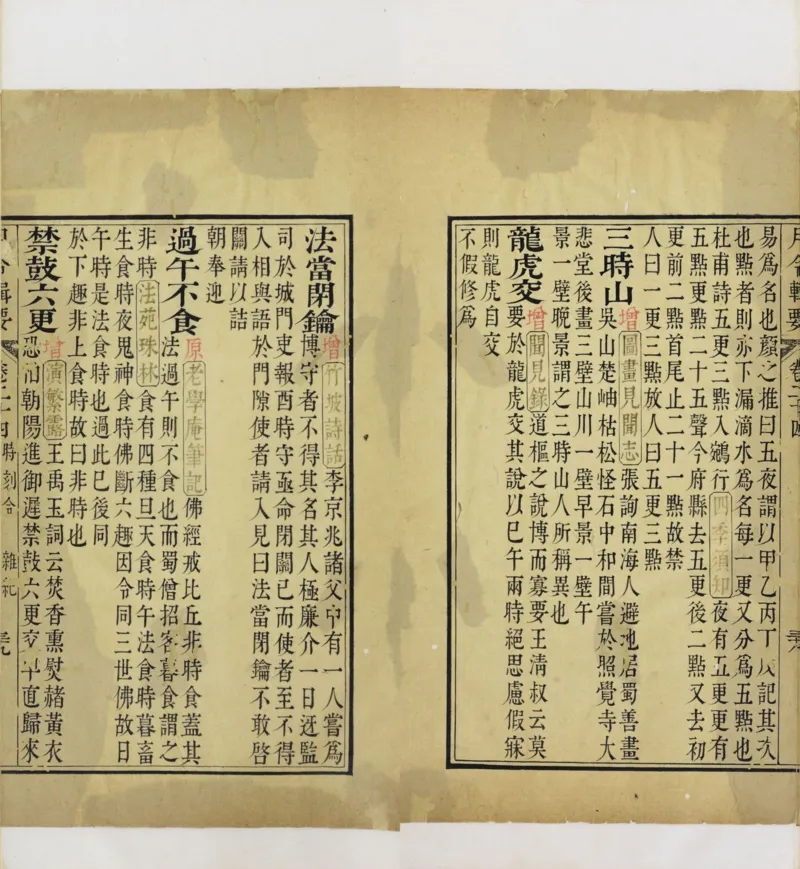 月令輯要 卷二十四
易為名也顏之推曰五夜謂以甲乙丙丁戊記其次
也點者則亦下漏滴水為名每一更又分為五點也
杜甫詩五更三點入鵷行四季須知夜有五更更有
五點更點二十五聲今府縣去五更後二點又去初
更前二點首尾止二十一點故禁
人曰一更三點放人曰五更三點
三時山增圖畫見聞志張詢南海人避地居蜀善畫
吳山楚岫枯松怪石中和間嘗於照覺寺大
悲堂後畫三壁山川一壁早景一壁午
景一壁晚景謂之三時山人所稱異也
龍虎交增聞見錄道樞之說博而寡要王清叔云莫
要於龍虎交其說以巳午兩時絕思慮假寐
則龍虎自交
不假修為
法當閉鑰增竹坡詩話李京兆諸父中有一人嘗為
博守者不得其名其人極廉介一日迓監
司於城門吏報酉時守亟命閉關已而使者至不得
入相與語於門隙使者請入見曰法當閉鑰不敢啓
關請以詰
朝奉迎
過午不食原老學庵筆記佛經戒比丘非時食蓋其
法過午則不食也而蜀僧招客暮食謂之
非時法苑珠林食有四種旦天食時午法食時暮畜
生食時夜鬼神食時佛斷六趣因令同三世佛故日
午時是法食時也過此已後同
於下趣非上食時故曰非時也
禁鼓六更增演繁露王禹玉詞云焚香熏熨赭黃衣
恐怕朝陽進御遲禁鼓六更交早直歸來
月令輯要 卷二十四 時刻令 雜紀